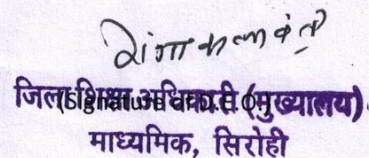 जिला शिक्षा अधिकारी (मुख्यालय)
(Signature of D.E.O.)
माध्यमिक, सिरोही